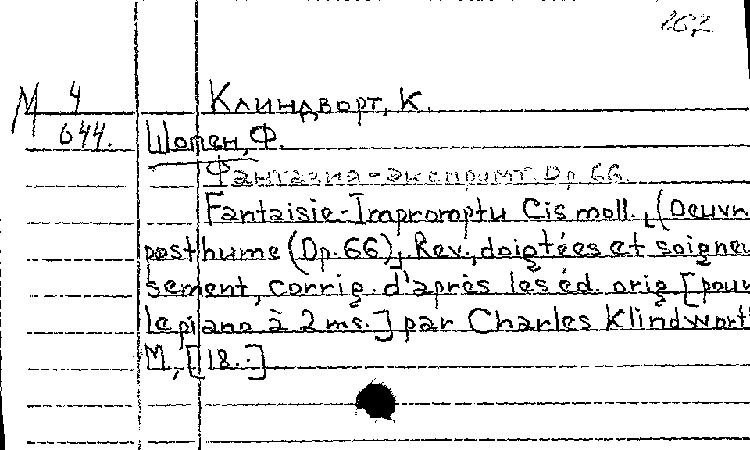 267
М 4 Клиндворт, К.
644. Шопен, Ф.
Фантазия-экспромт. Op. 66.
Fantaisie-Impromptu Cis moll. (Oeuvr
posthume (Op. 66), Rev., doigtées et soigneu
sement, corrig. d'après les éd. orig [pour
le piano à 2 ms.] par Charles Klindwort
М., [18. .]